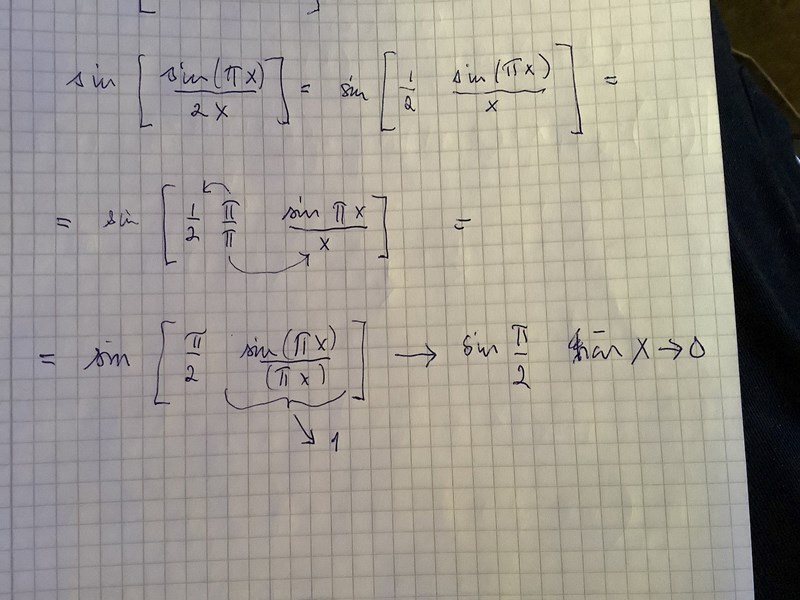 sin [ sin(πx) / 2x ] = sin [ 1/2 sin(πx) / x ] =
= sin [ 1/2 π/π sin πx / x ] =
= sin [ π/2 sin(πx) / (πx) ] → sin π/2 x → 0
↘ 1